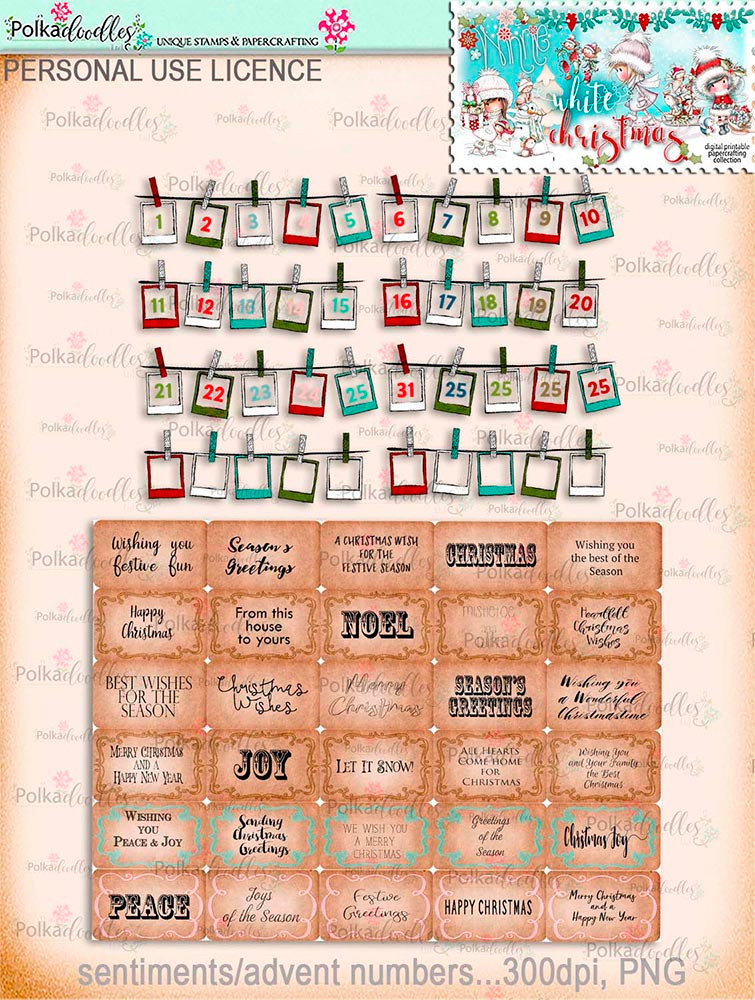 Polkadoodles Ltd
UNIQUE STAMPS & PAPERCRAFTING
PERSONAL USE LICENCE
Winnie
white
christmas
digital printable
papercrafting
collection
1 2 3 4 5 6 7 8 9 10
11 12 13 14 15 16 17 18 19 20
21 22 23 24 25 31 25 25 25 25
Wishing you
festive fun
Season's
Greetings
A CHRISTMAS WISH
FOR THE
FESTIVE SEASON
CHRISTMAS
Wishing you
the best of the
Season
Happy
Christmas
From this
house
to yours
NOEL
mistletoe
Heartfelt
Christmas
Wishes
BEST WISHES
FOR THE
SEASON
Christmas
Wishes
Merry
Christmas
SEASON'S
GREETINGS
Wishing you
a Wonderful
Christmastime
MERRY CHRISTMAS
AND A
HAPPY NEW YEAR
JOY
LET IT SNOW!
ALL HEARTS
COME HOME
FOR
CHRISTMAS
Wishing You
and Your Family
the Best
Christmas
WISHING
YOU
PEACE & JOY
Sending
Christmas
Greetings
WE WISH YOU
A MERRY
CHRISTMAS
Greetings
of the
Season
Christmas Joy
PEACE
Joys
of the Season
Festive
Greetings
HAPPY CHRISTMAS
Merry Christmas
and a
Happy New Year
sentiments/advent numbers...300dpi, PNG